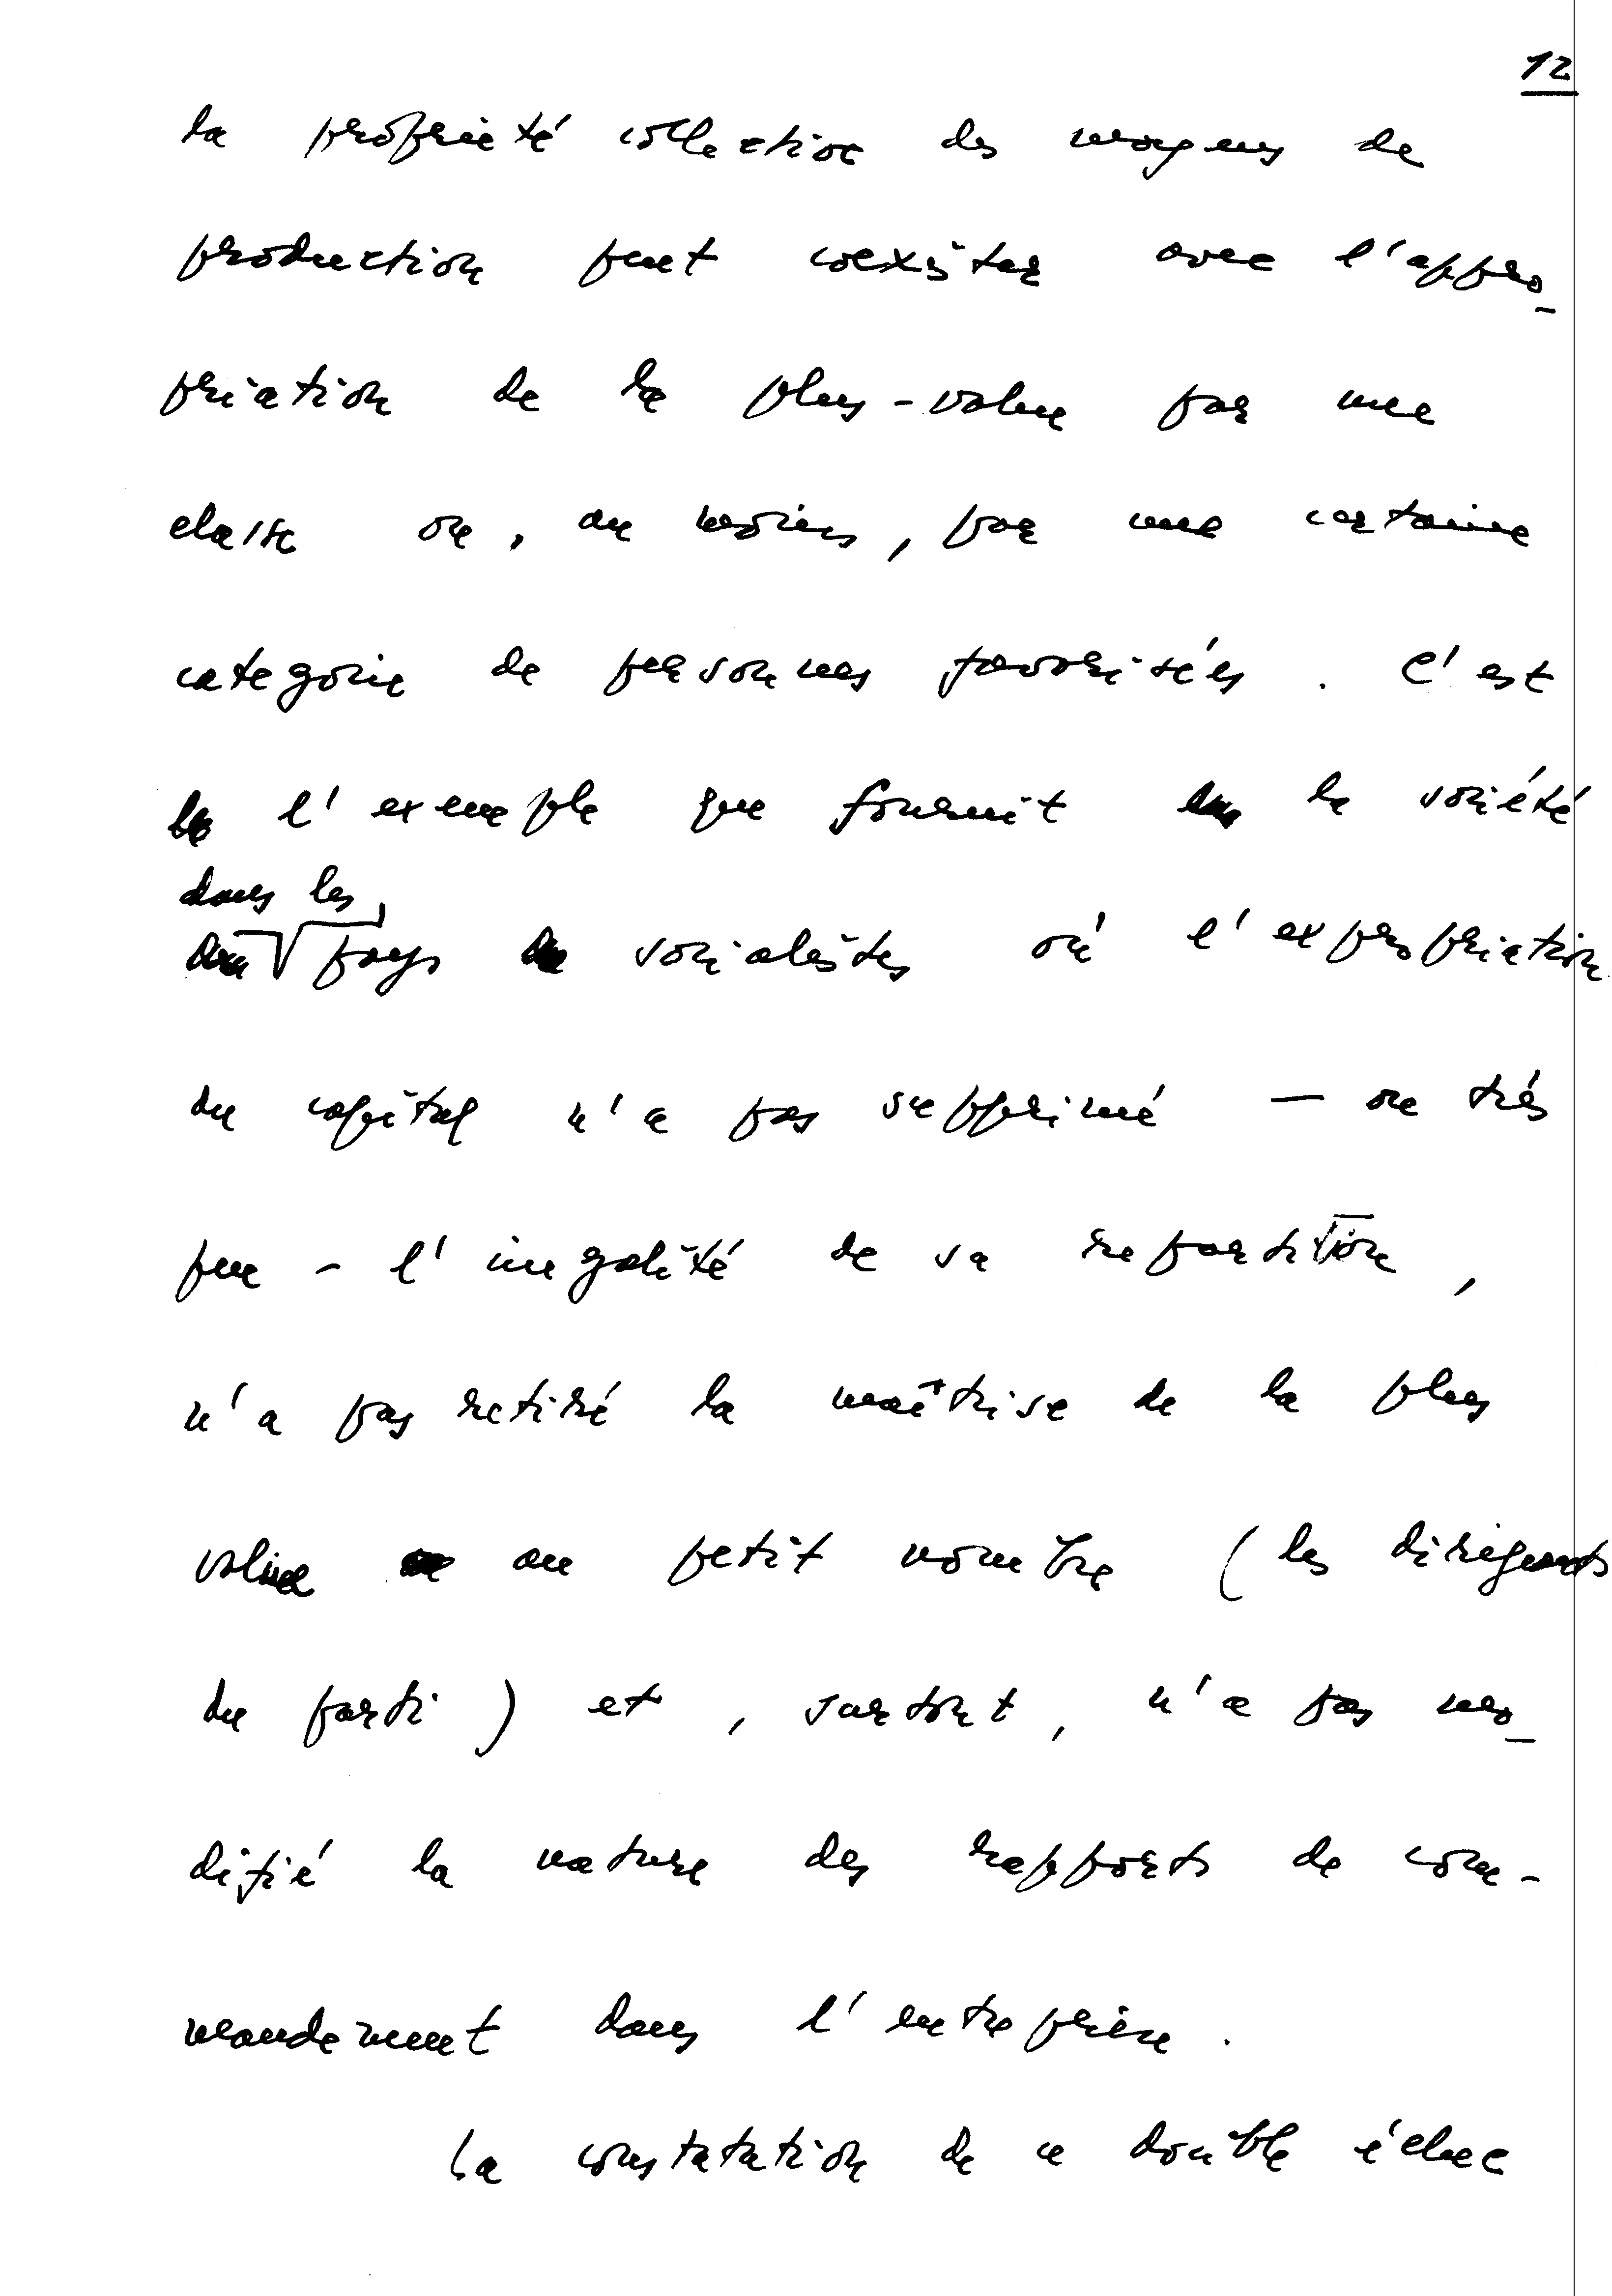 12
la propriété collective des moyens de
production peut coexister avec l'appro_
priation de la plus-value par une
classe ou, au moins, par une certaine
categorie de personnes favorisées. C'est
l'exemple que fournit la société
dans les
pays socialistes où l'expropriation
du capital n'a pas supprimé — ou très
peu - l'inégalité de sa repartition,
n'a pas retiré la maîtrise de la plus
value au petit nombre (les dirigeants
du parti) et, surtout, n'a pas mo_
difié la nature des rapports de com-
mandement dans l'entreprise.
La constatation de ce double échec